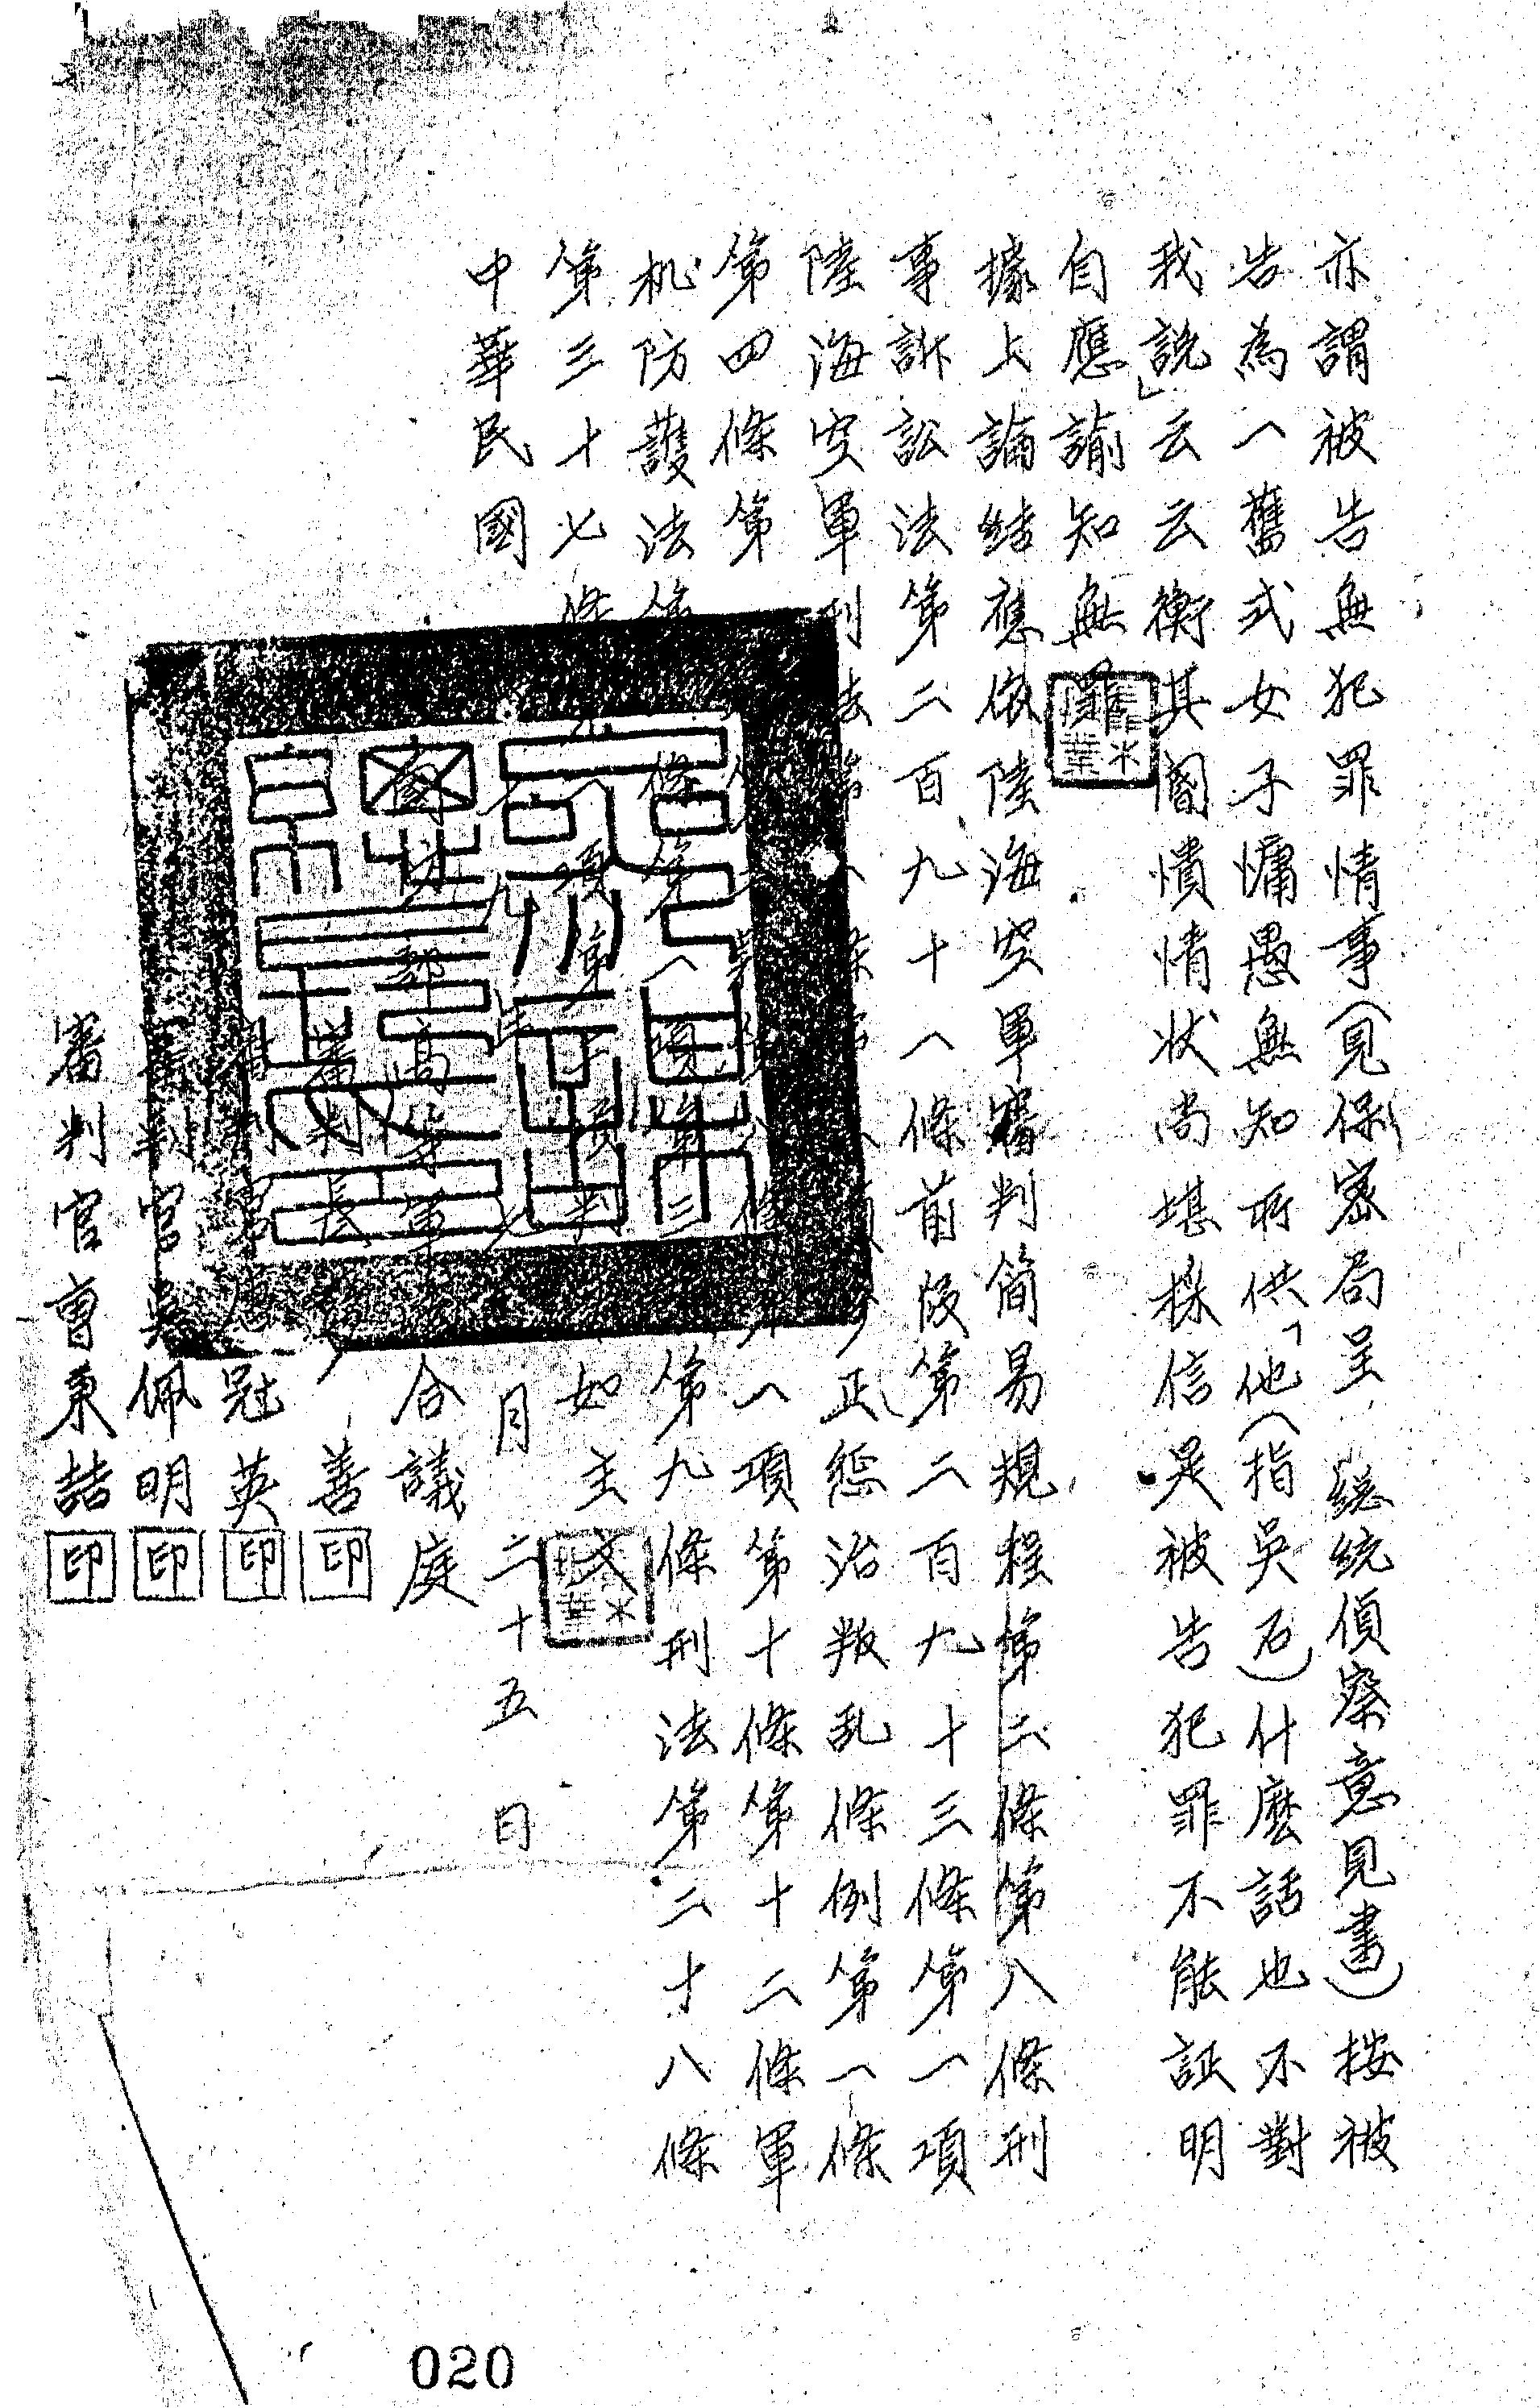 亦謂被告無犯罪情事（見保密局呈　總統偵察意見書）按被
告為一舊式女子慵愚無知所供「他（指吳石）什麼話也不對
我說」云云衡其闇憒情狀尚堪採信是被告犯罪不能証明
自應諭知無罪
據上論結應依陸海空軍審判簡易規程第二條第八條刑
事訴訟法第二百九十一條前段第二百九十三條第一項
陸海空軍刑法第 條 正懲治叛乱條例第一條
第四條第 一項第十條第十二條軍
机防護法第 條第一項第三 第九條刑法第二十八條
第三十七條 第一項判 如主文
中華民國 九年七月二十五日
國防部高等軍 合議庭
審判長 善 印
審判官 冠英 印
審判官吳佩明 印
審判官曹秉喆 印
020